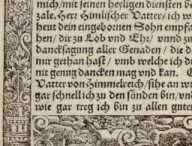 mich/mit seinen heyligen diensten die
zale. Herr Himlischer Vatter/ ich
heut dein eingebornen Sohn empfa
hen/ dir zu Lob vnd Ehr/ vnnd zu
dancksagung aller Genaden/ die d
mir gethan hast/ vmb welche ich di
nit genug dancken mag vnd kan.
Vatter von Himmelreich/ sihe an w
gar schnell ich zu den sünden bin/ vnd
wie gar treg ich bin zu allen guten